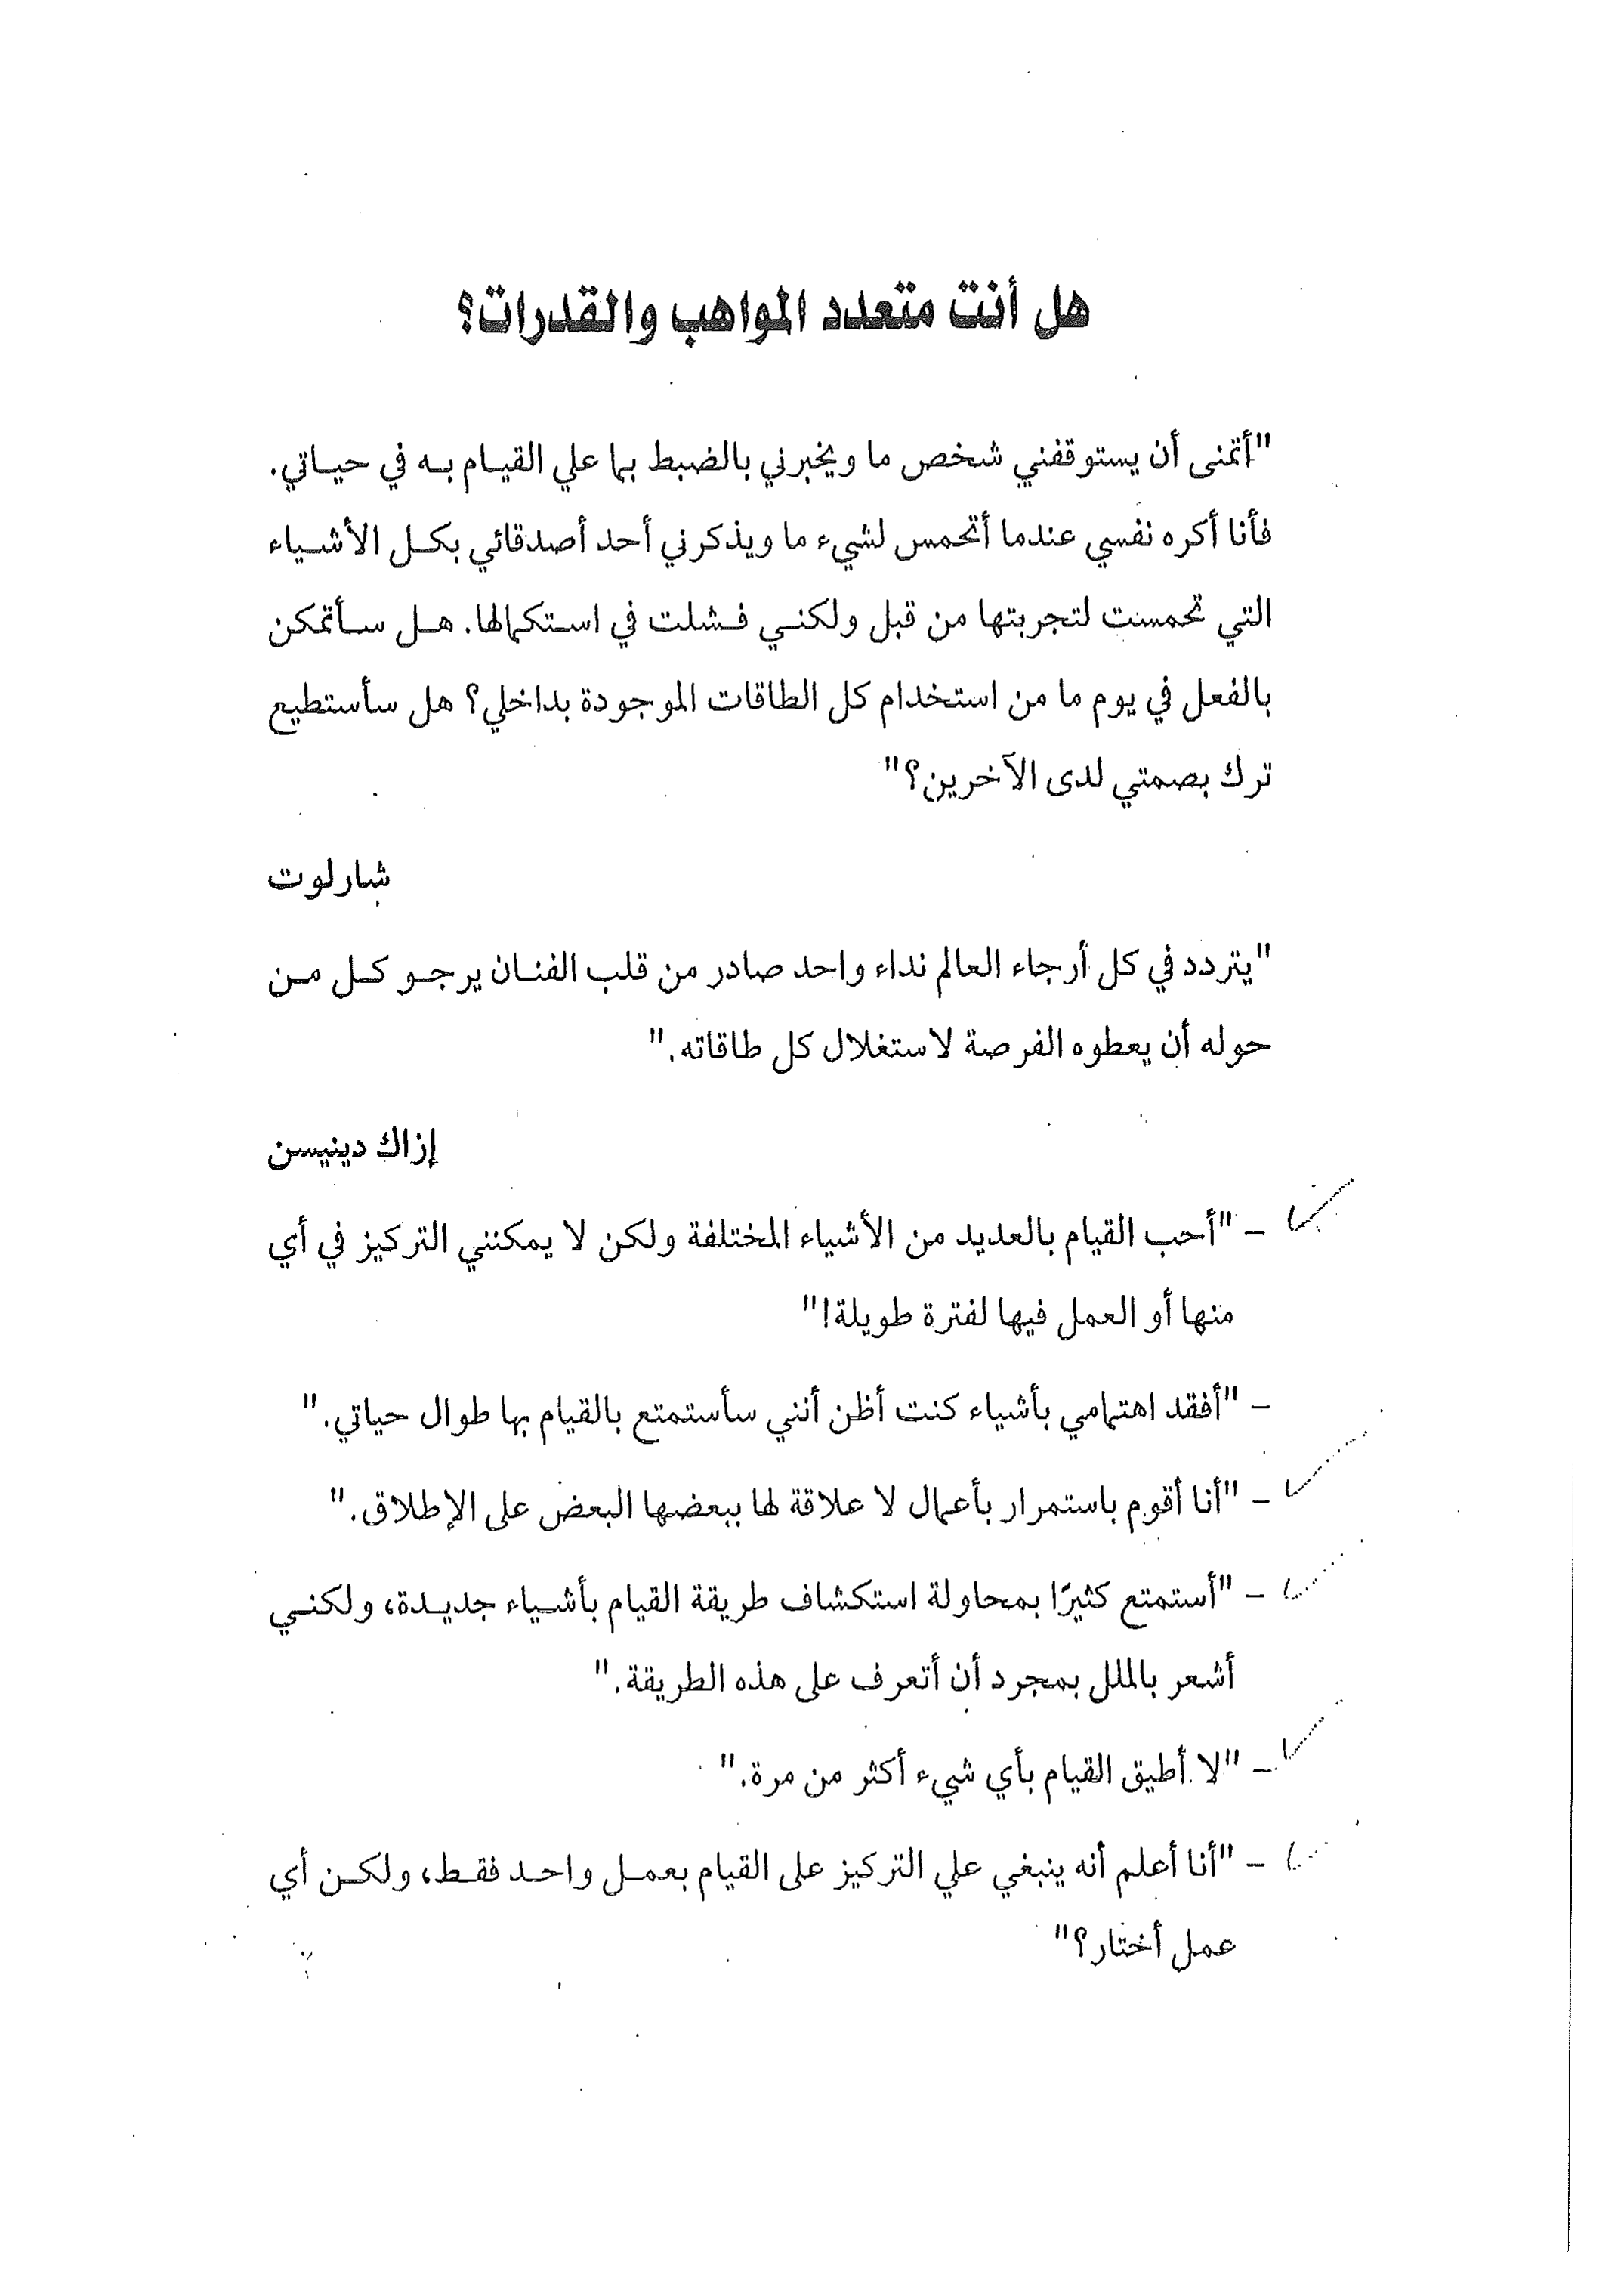 هل أنت متعدد المواهب والقدرات؟
"أتمنى أن يستوقفني شخص ما ويخبرني بالضبط بما علي القيام به في حياتي.
فأنا أكره نفسي عندما أتحمس لشيء ما ويذكرني أحد أصدقائي بكل الأشياء
التي تحمست لتجربتها من قبل ولكني فشلت في استكمالها. هل سأتمكن
بالفعل في يوم ما من استخدام كل الطاقات الموجودة بداخلي؟ هل سأستطيع
ترك بصمتي لدى الآخرين؟"
شارلوت
"يتردد في كل أرجاء العالم نداء واحد صادر من قلب الفنان يرجو كل من
حوله أن يعطوه الفرصة لاستغلال كل طاقاته."
إزاك دينيسن
- "أحب القيام بالعديد من الأشياء المختلفة ولكن لا يمكنني التركيز في أي
منها أو العمل فيها لفترة طويلة!"
- "أفقد اهتمامي بأشياء كنت أظن أنني سأستمتع بالقيام بها طوال حياتي."
- "أنا أقوم باستمرار بأعمال لا علاقة لها ببعضها البعض على الإطلاق."
- "أستمتع كثيرًا بمحاولة استكشاف طريقة القيام بأشياء جديدة، ولكني
أشعر بالملل بمجرد أن أتعرف على هذه الطريقة."
- "لا أطيق القيام بأي شيء أكثر من مرة."
- "أنا أعلم أنه ينبغي علي التركيز على القيام بعمل واحد فقط، ولكن أي
عمل أختار؟"